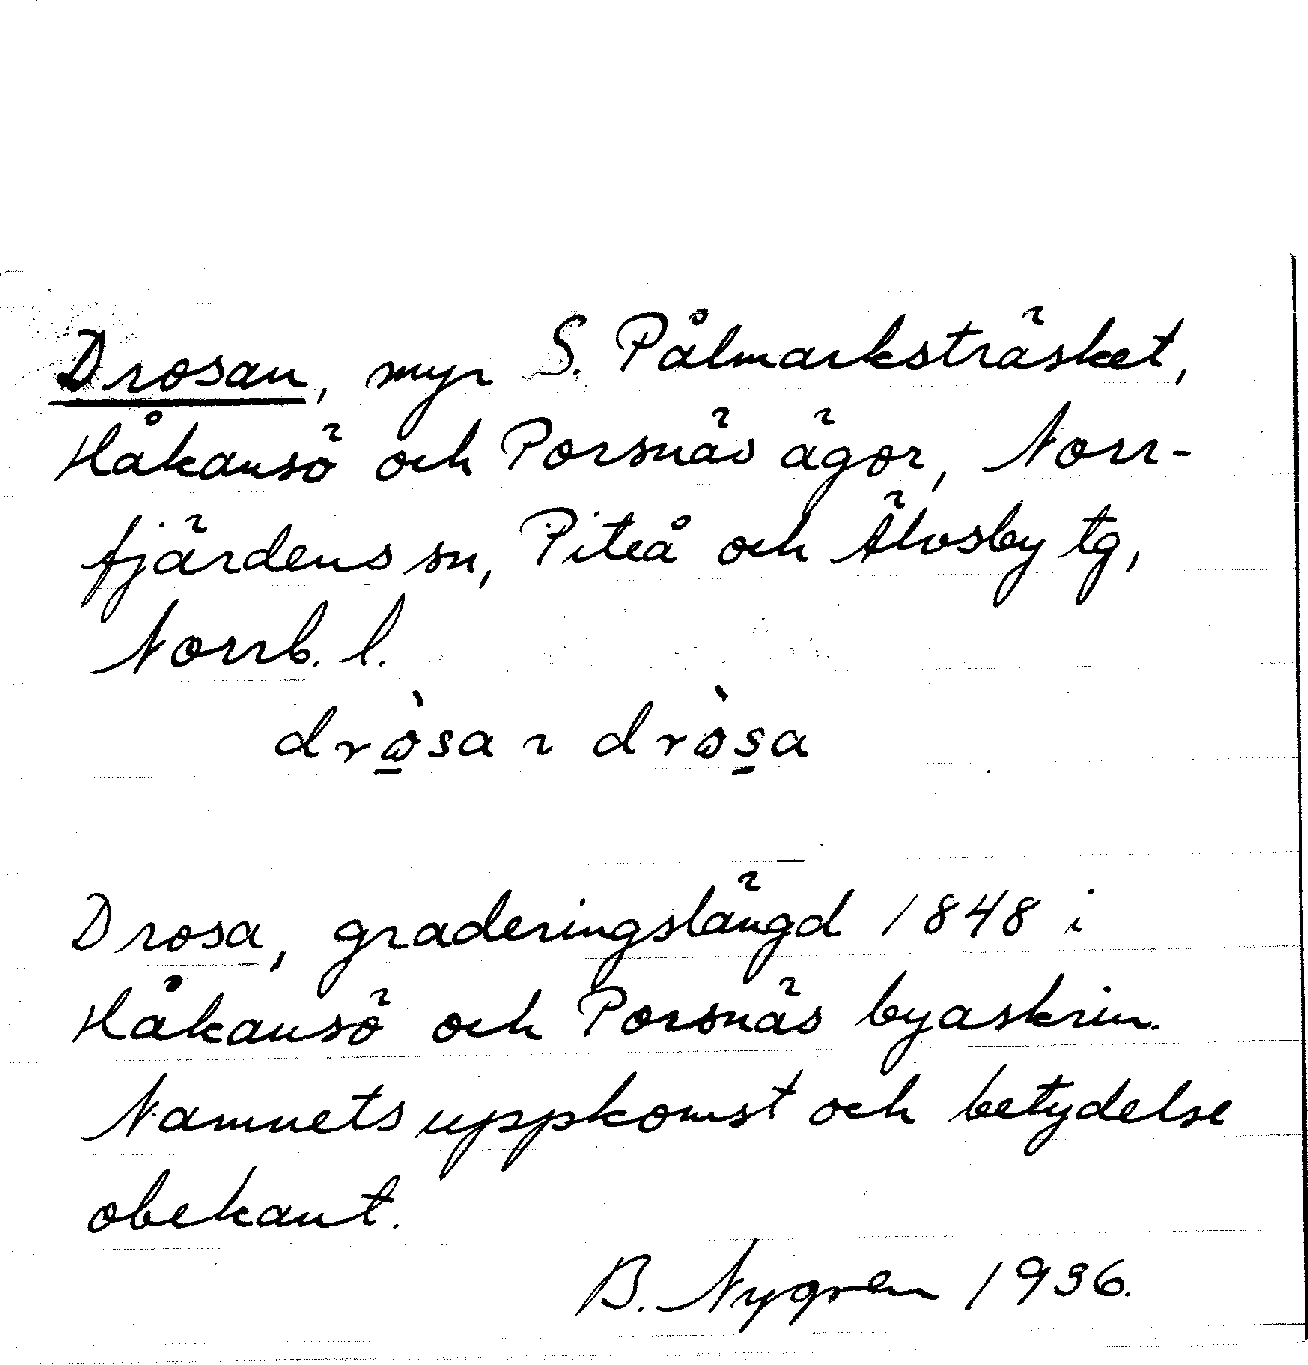 Drosan, myr S. Pålmarksträsket,
Håkansö och Porsnäs ägor, Norr-
fjärdens sn, Piteå och Älvsby tg,
Norrb. l.
drò̱sa ~ dròs̱a
Drosa, graderingslängd 1848 i
Håkansö och Porsnäs byaskrin.
Namnets uppkomst och betydelse
obekant.
B. Nygren 1936.